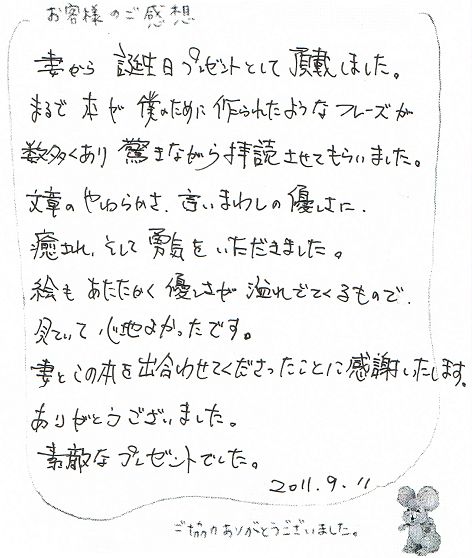 お客様のご感想
妻から 誕生日プレゼントとして 頂戴しました。
まるで 本が 僕のために 作られたような フレーズが
数多くあり 驚きながら 拝読させてもらいました。
文章の やわらかさ、言いまわしの 優しさに、
癒され、そして 勇気を いただきました。
絵も あたたかく 優しさが 溢れでてくるもので、
見ていて 心地よかったです。
妻と この本を 出合わせてくださったことに 感謝いたします。
ありがとうございました。
素敵な プレゼントでした。
2011.9.11
ご協力ありがとうございました。